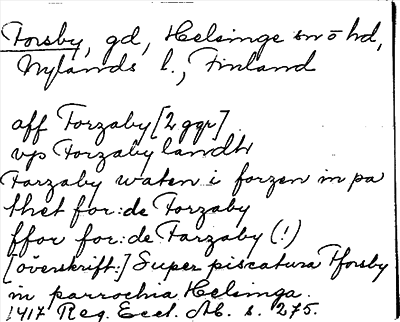 Forsby, gd, Helsinge snö hd,
Nylands l., Finland
aff Forzaby [2 ggr]
vp Forzaby landh
Farzaby waten i forzen in pa
thet for:de Forzaby
ffor for:de Farzaby (!)
[överskrift:] Super piscatura Fforsby
in parrochia Helsinga.
1417 Reg. Eccl. Ab. s. 275.